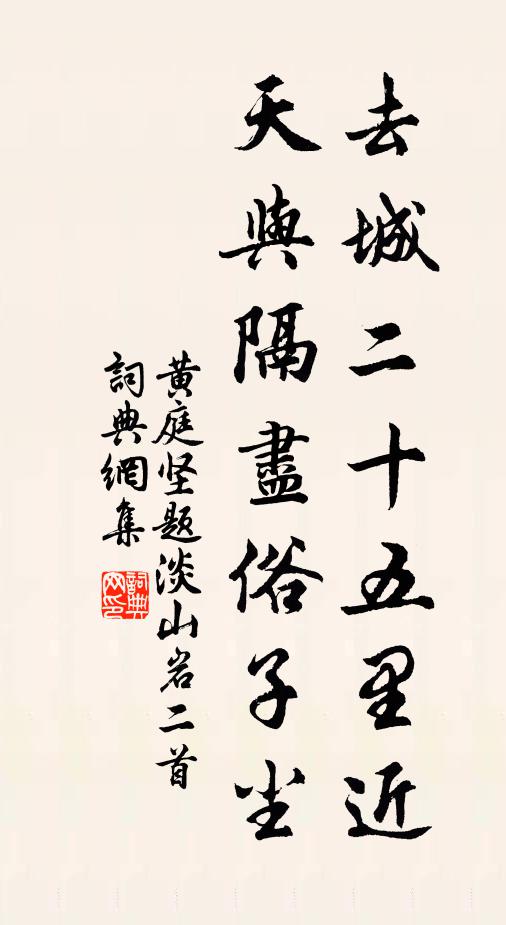 去城二十五里近
天與隔盡俗子尘
黄庭坚题淡山岩二首
詞典網集
詞典网印